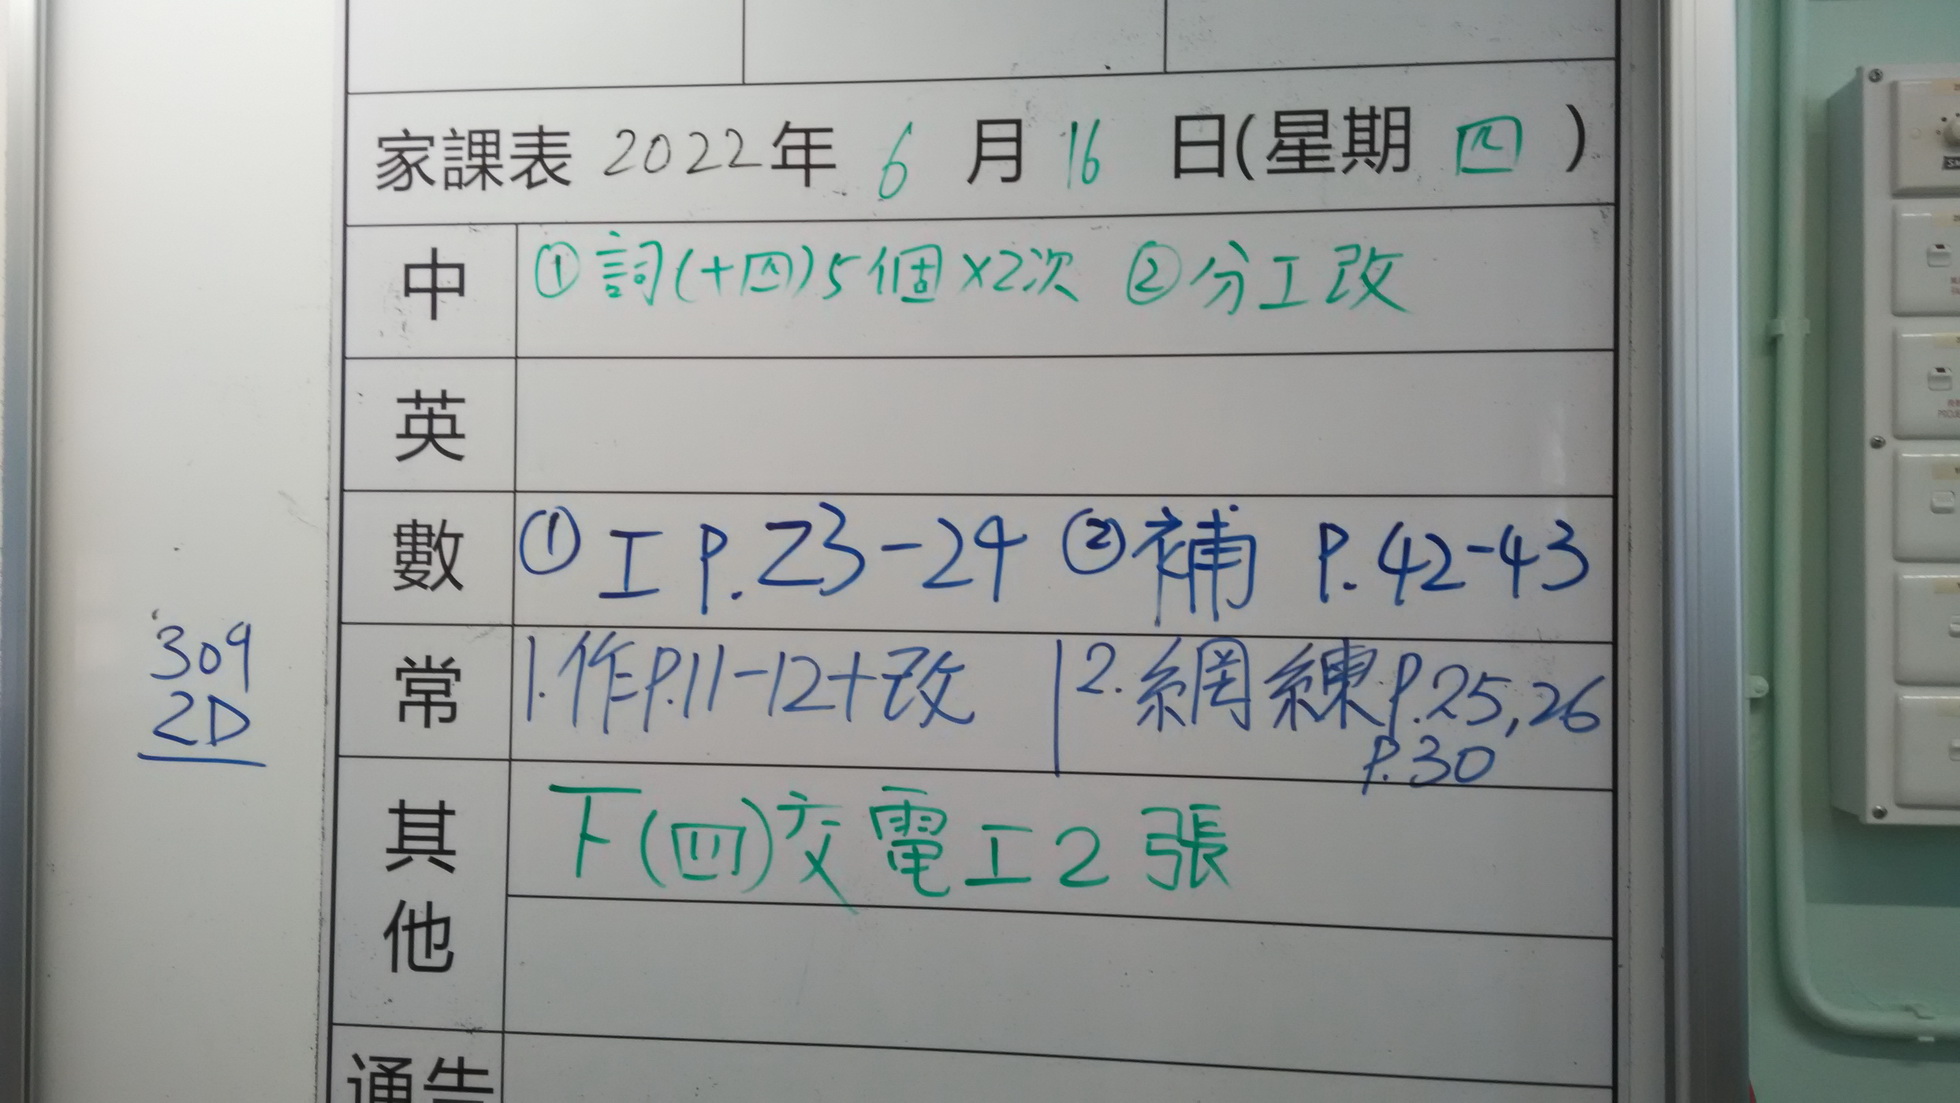 家課表 2022年 6 月 16 日(星期 四 )
中 ①詞(十四)5個×2次 ②分工改
英
數 ①工 P.23-24 ②補 P.42-43
常 1.作P.11-12+改 2.網練P.25,26
P.30
309
2D
其他 下(四)交電工2張
通告